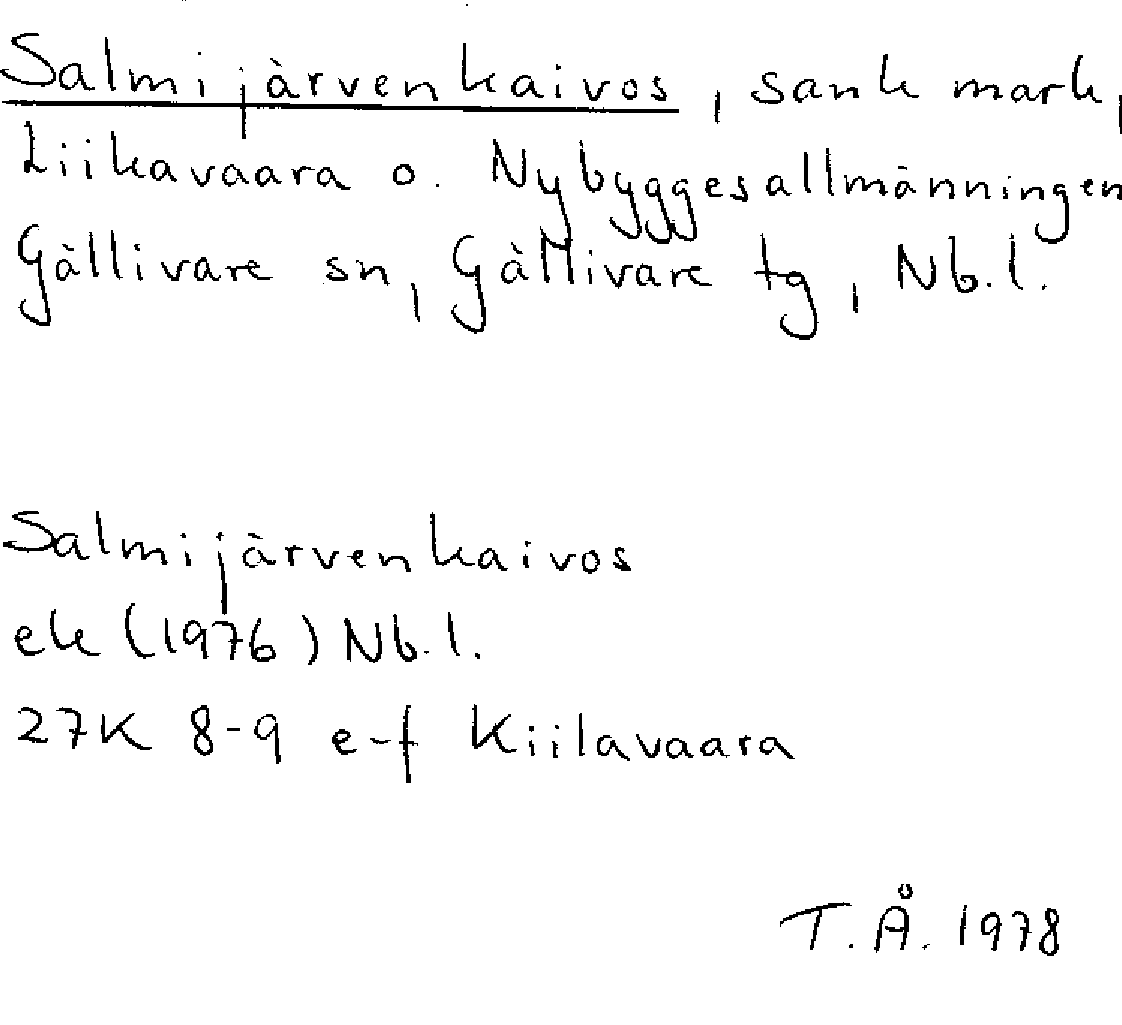 Salmijärvenkaivos, sank mark,
Liikavaara o. Nybyggesallmänningen
Gällivare sn, Gällivare tg, Nb.l.
Salmijärvenkaivos
ek (1976) Nb.l.
27K 8-9 e-f Kiilavaara
T.Å. 1978